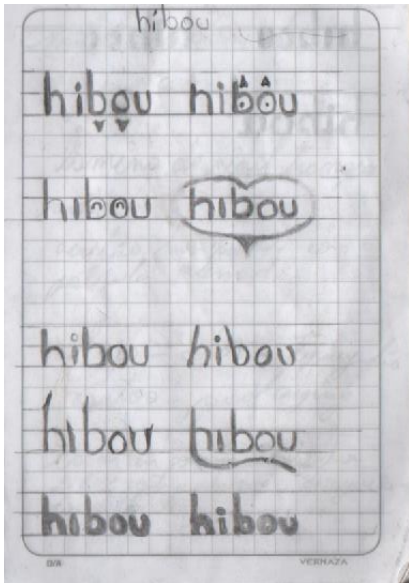 hibou
hibou hibou
hibou hibou
hibou hibou
hibou hibou
hibou hibou
VERNAZA